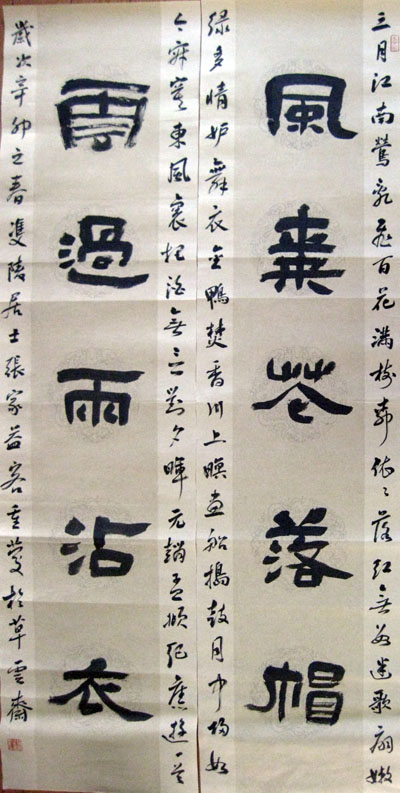 三月江南鶯亂飛百花滿樹柳依依落紅無數迷歌扇嫩
風花落帽
綠多情妒舞衣金鴨焚香川上暝畫船撾鼓月中歸如
今寂寞東風裏把酒無言對夕暉元趙孟頫紀舊遊一首
雲過雨沾衣
歲次辛卯之春雙陵居士張家益客於草雲齋